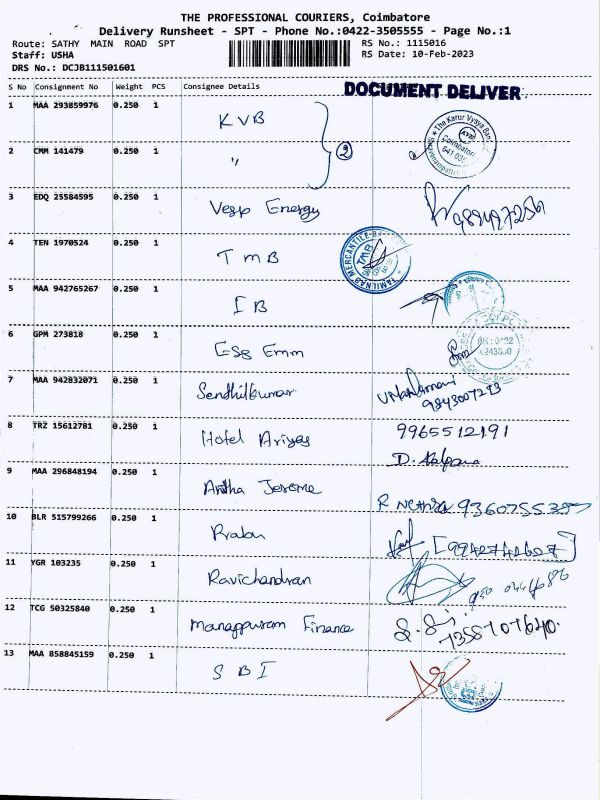 THE PROFESSIONAL COURIERS, Coimbatore
Delivery Runsheet - SPT - Phone No.:0422-3505555 - Page No.:1
Route: SATHY MAIN ROAD SPT RS No.: 1115016
Staff: USHA RS Date: 10-Feb-2023
DRS No.: DCJB111501601
S No Consignment No Weight PCS Consignee Details DOCUMENT DELIVER
1 MAA 293859976 0.250 1 KVB 2
2 CMM 141479 0.250 1 "
3 EDQ 25584595 0.250 1 Vesp Energy
4 TEN 1970524 0.250 1 TMB
5 MAA 942765267 0.250 1 IB
6 GPM 273818 0.250 1
7 MAA 942832071 0.250 1 Sendhilkumar 9843007293
8 TRZ 15612781 0.250 1 Hotel Ariyas 9965512191
D. Kalpana
9 MAA 296848194 0.250 1 Anitha Jerome
10 BLR 515799266 0.250 1 Prabu [9942742627]
11 YGR 103235 0.250 1 Ravichandran
12 TCG 50325840 0.250 1 Manappuram Finance 7358707640
13 MAA 858845159 0.250 1 SBI